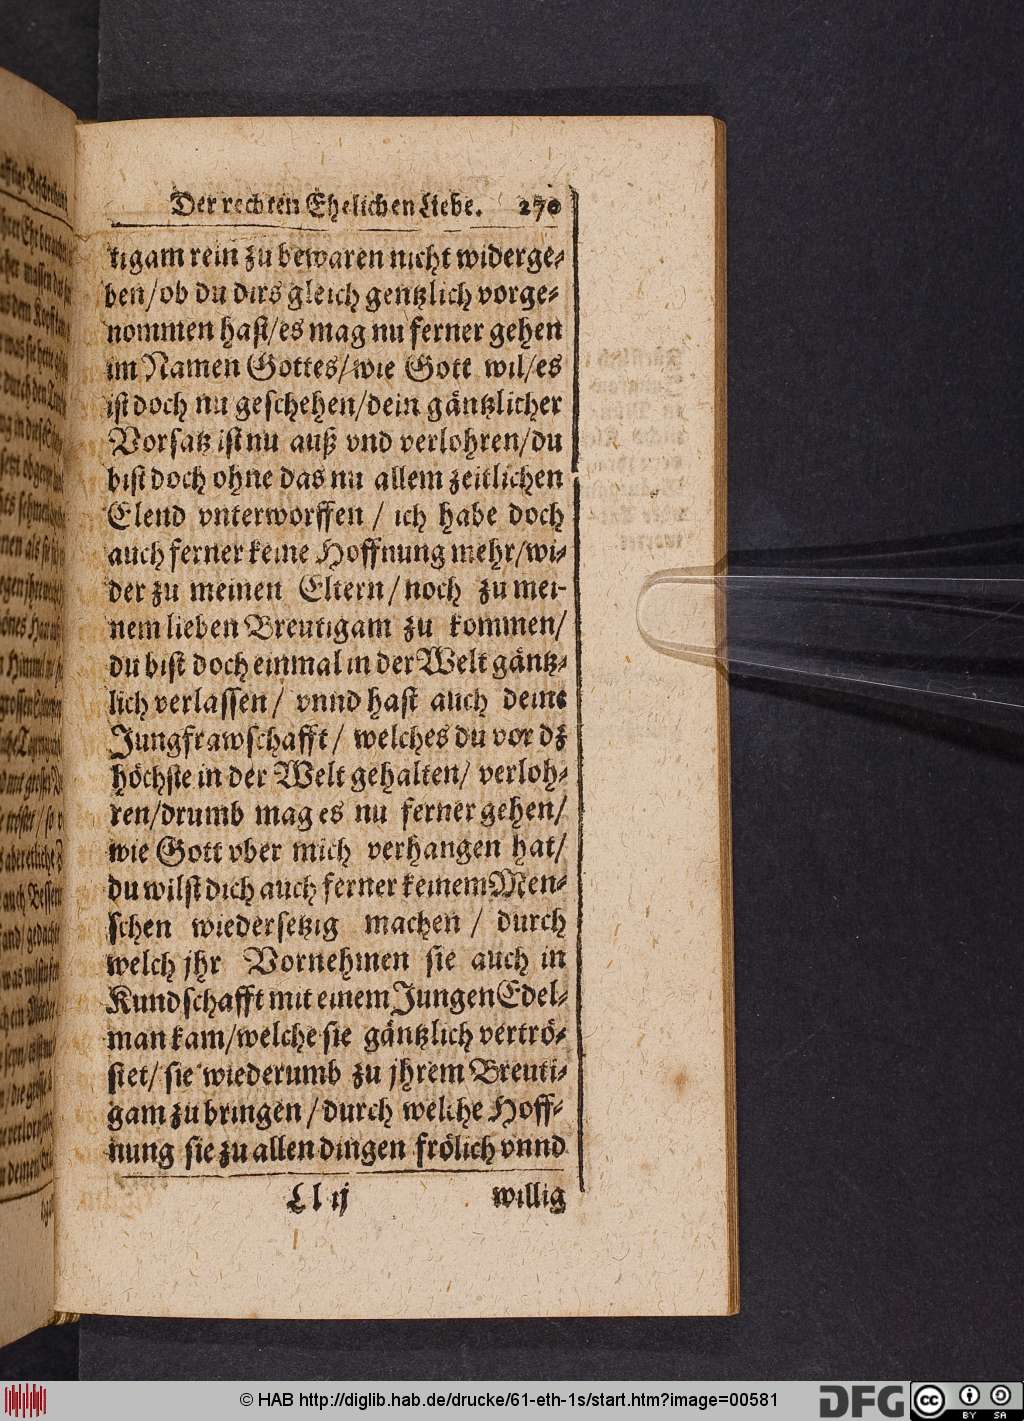 Der rechten Ehelichen Liebe. 270
tigam rein zu bewaren nicht widerge-
ben/ob du dirs gleich gentzlich vorge-
nommen hast/es mag nu ferner gehen
im Namen Gottes/wie Gott wil/es
ist doch nu geschehen/dein gäntzlicher
Vorsatz ist nu auß vnd verlohren/du
bist doch ohne das nu allem zeitlichen
Elend vnterworffen / ich habe doch
auch ferner keine Hoffnung mehr/wi-
der zu meinen Eltern/noch zu mei-
nem lieben Breutigam zu kommen/
du bist doch einmal in der Welt gäntz-
lich verlassen / vnnd hast auch deine
Jungfrawschafft / welches du vor dz
höchste in der Welt gehalten/ verloh-
ren/drumb mag es nu ferner gehen/
wie Gott vber mich verhangen hat/
du wilst dich auch ferner keinem Men-
schen wiedersetzig machen / durch
welch jhr Vornehmen sie auch in
Kundschafft mit einem Jungen Edel-
man kam/welche sie gäntzlich vertrö-
stet/ sie wiederumb zu jhrem Breuti-
gam zu bringen /durch welche Hoff-
nung sie zu allen dingen frölich vnnd
Ll ij willig
© HAB http://diglib.hab.de/drucke/61-eth-1s/start.htm?image=00581
DFG
cc BY SA